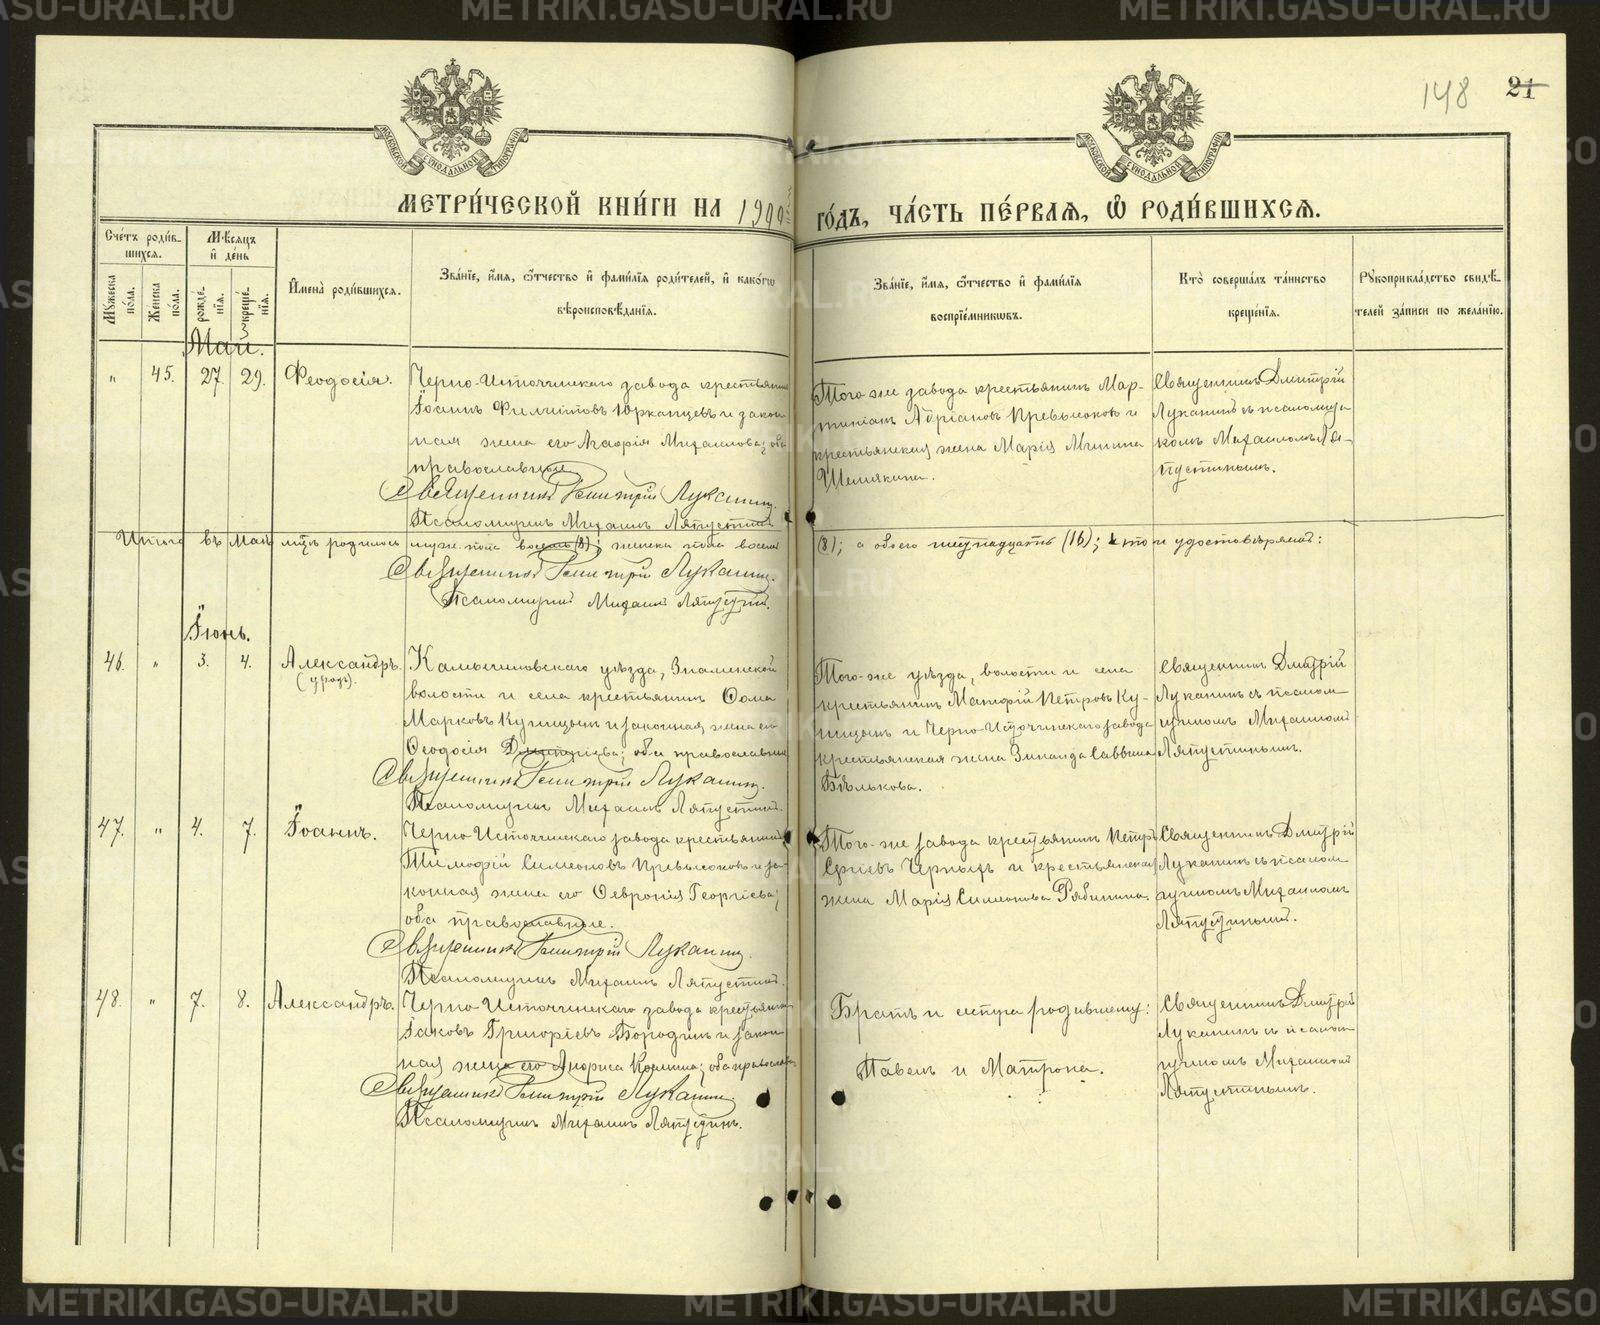 METRIKI.GASO-URAL.RU
148 21
МОСКОВСКОЙ СѴНОДАЛЬНОЙ ТИПОГРАФІИ
МОСКОВСКОЙ СѴНОДАЛЬНОЙ ТИПОГРАФІИ
МЕТРИ́ЧЕСКОЙ КНИ́ГИ НА 1900 ГО́ДЪ, ЧА́СТЬ ПЕ́РВАЯ, Ѡ РОДИ́ВШИХСЯ.
Сче́тъ роди́в-
шихся.
Мꙋжеска по́ла.
Же́нска по́ла.
Мѣ́сяцъ и҆ де́нь
рожде́нїя.
креще́нїя.
И҆мена̀ роди́вшихся.
Зва́нїе, и҆́мя, ѻ҆́тчество и҆ фами́лїя роди́телей, и҆ како́гѡ
вѣроисповѣ́данїя.
Зва́нїе, и҆́мя, ѻ҆́тчество и҆ фами́лїя
воспрїе́мникѡвъ.
Кто̀ соверша́лъ та́инство
креще́нїя.
Рꙋкоприкла́дство свидѣ́-
телей за́писи по жела́нїю.
Май.
" 45. 27. 29. Феодосія.
Черно-Источинскаго завода крестьянинъ
Іоаннъ Филиповъ Юрканцевъ и закон-
ная жена его Агафія Михаилова; оба
православные
Священникъ Димитрій Луканинъ.
Псаломщикъ Михаилъ Ляпустинъ
Того-же завода крестьянинъ Мар-
тиніанъ Адріановъ Превысоковъ и
крестьянская жена Марія
Шемякина.
Священникъ Дмитрій
Луканинъ съ псаломщи-
комъ Михаиломъ Ля-
пустинымъ.
Итого въ Маѣ м-цѣ родилось муж. пола восемь (8); женска пола восемь
(8); а обоего шестнадцать (16); что и удостовѣряютъ:
Священникъ Димитрій Луканинъ.
Псаломщикъ Михаилъ Ляпустинъ.
Іюнь.
46. " 3. 4. Александръ.
(уродъ).
Камышловскаго уѣзда, Знаменской
волости и села крестьянинъ Ѳома
Марковъ Купицынъ и законная жена его
Ѳеодосія Димитріева; оба православные
Священникъ Димитрій Луканинъ.
Псаломщикъ Михаилъ Ляпустинъ.
Того-же уѣзда, волости и села
крестьянинъ Матфій Петровъ Ку-
пицынъ и Черно-Источинскаго завода
крестьянская жена Зинаида Саввина
Бѣлькова.
Священникъ Дмитрій
Луканинъ съ псалом-
щикомъ Михаиломъ
Ляпустинымъ.
47. " 4. 7. Іоаннъ.
Черно-Источинскаго завода крестьянинъ
Тимофій Симеоновъ Превысоковъ и за-
конная жена его Ѳевронія Георгіева;
оба православные.
Священникъ Димитрій Луканинъ.
Псаломщикъ Михаилъ Ляпустинъ.
Того-же завода крестьянинъ Петръ
Сергіевъ Черныхъ и крестьянская
жена Марія Симеонова Рябинина.
Священникъ Дмитрій
Луканинъ съ псалом-
щикомъ Михаиломъ
Ляпустинымъ.
48. " 7. 8. Александръ.
Черно-Источинскаго завода крестьянинъ
Іаковъ Григоріевъ Бородинъ и закон-
ная жена его православные
Священникъ Димитрій Луканинъ.
Псаломщикъ Михаилъ Ляпустинъ.
Братъ и сестра родившему:
Павелъ и Матрона.
Священникъ Дмитрій
Луканинъ съ псалом-
щикомъ Михаиломъ
Ляпустинымъ.